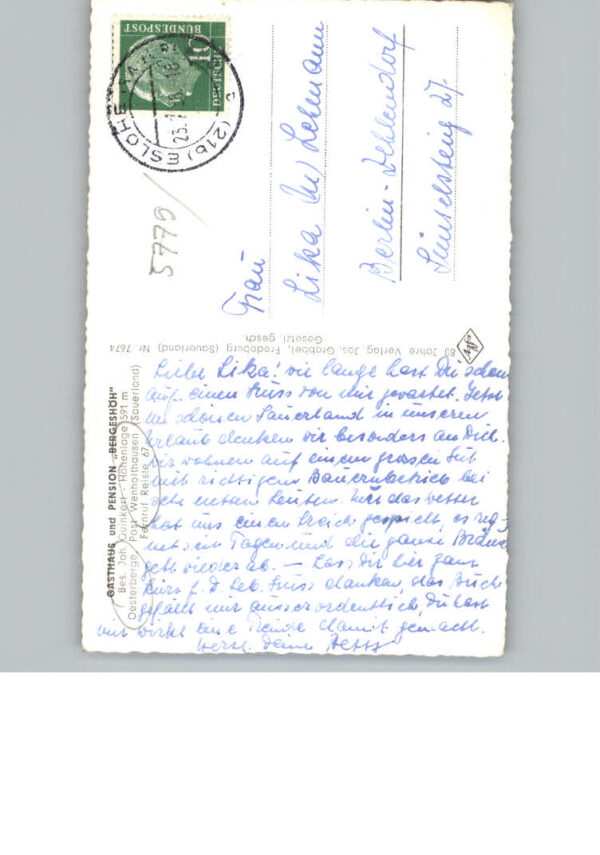 DEUTSCHE
BUNDESPOST
10
(21b) ESLOHE
5779/
Frau
Lika Lehmann
Berlin-Zehlendorf
27.
80 Jahre Verlag Jos. Grobbel, Fredeburg (Sauerland) Nr. 7674
Gesetzl. gesch.
GASTHAUS und PENSION „BERGESHÖH"
Bes. Joh. Guinkert · Höhenlage 591 m
Oesterberge, Post Wenholthausen (Sauerland)
Fernruf Reiste 67
Liebe Lika! wie lange hast Du schon
auf einen Gruss von mir gewartet. Jetzt
im schönen Sauerland in unserem
Urlaub denken wir besonders an Dich.
Wir wohnen auf einem grossen Gut
mit richtigem Bauernbetrieb bei
sehr netten Leuten. Nur das Wetter
hat uns einen Streich gespielt, es reg-
net seit Tagen und die ganze Bräune
geht wieder ab. — Lass Dir hier ganz
kurz f. D. lb. Gruss danken, das Buch
gefällt mir ausserordentlich, Du hast
mir wirkl. eine Freude damit gemacht.
Herzl. Deine